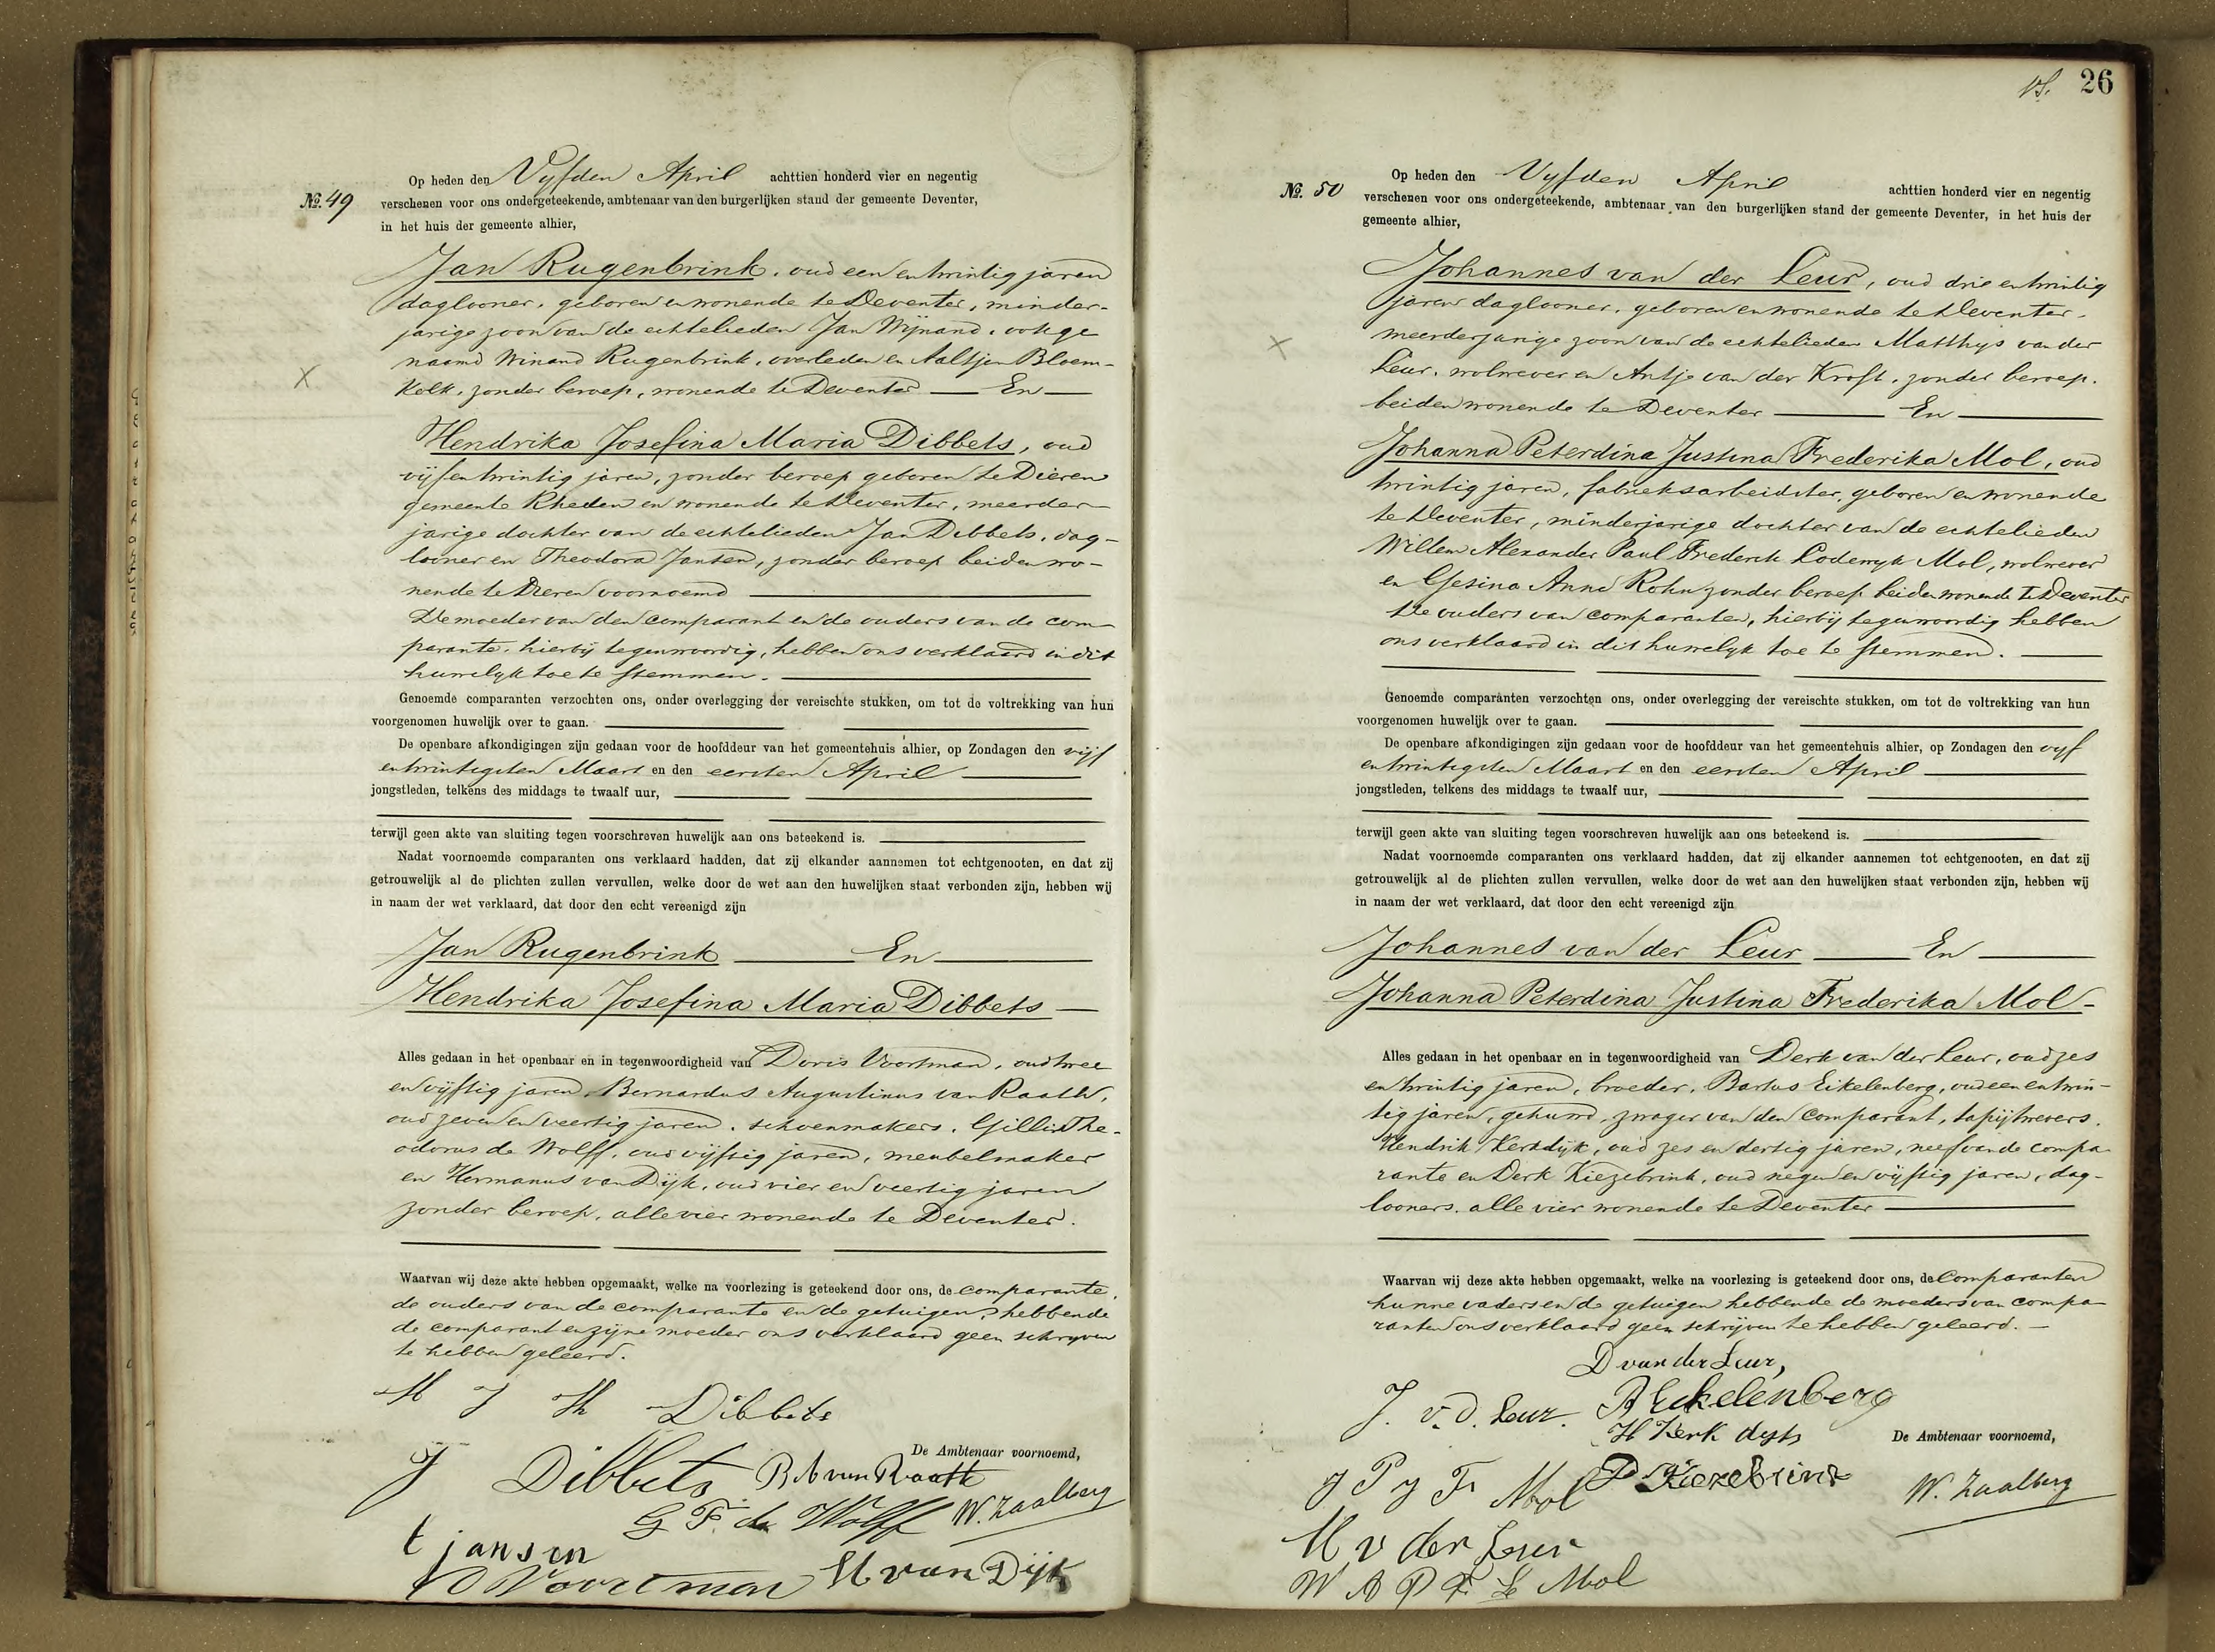 Op heden den Vyfden April achttien honderd vier en negentig
№. 49 verschenen voor ons ondergeteekende, ambtenaar van den burgerlijken stand der gemeente Deventer,
in het huis der gemeente alhier,
Jan Rugenbrink, oud een en twintig jaren
daglooner, geboren en wonende te Deventer, minder-
jarige zoon van de echtelieden Jan Wijnand, ook ge
naamd Winand Rugenbrink, overleden en Aaltjen Bloem-
kolk, zonder beroep, wonende te Deventer — En —
Hendrika Josefina Maria Dibbets, oud
vijf en twintig jaren, zonder beroep geboren te Dieren
gemeente Rheden en wonende te Deventer, meerder-
jarige dochter van de echtelieden Jan Dibbets, dag-
looner en Theodora Jansen, zonder beroep beiden wo-
nende te Dieren voornoemd
De moeder van den comparant en de ouders van de com-
parante, hierbij tegenwoordig, hebben ons verklaard in dit
huwelijk toe te stemmen.
Genoemde comparanten verzochten ons, onder overlegging der vereischte stukken, om tot de voltrekking van hun
voorgenomen huwelijk over te gaan.
De openbare afkondigingen zijn gedaan voor de hoofddeur van het gemeentehuis alhier, op Zondagen den vijf
en twintigsten Maart en den eersten April
jongstleden, telkens des middags te twaalf uur,
terwijl geen akte van sluiting tegen voorschreven huwelijk aan ons beteekend is.
Nadat voornoemde comparanten ons verklaard hadden, dat zij elkander aannemen tot echtgenooten, en dat zij
getrouwelijk al de plichten zullen vervullen, welke door de wet aan den huwelijken staat verbonden zijn, hebben wij
in naam der wet verklaard, dat door den echt vereenigd zijn
Jan Rugenbrink — En —
Hendrika Josefina Maria Dibbets —
Alles gedaan in het openbaar en in tegenwoordigheid van Doris Voortman, oud twee
en vijftig jaren, Bernardus Augustinus van Raath,
oud zeven en veertig jaren, schoenmakers, Gillis The-
odorus de Wolff, oud vijftig jaren, meubelmaker
en Hermanus van Dijk, oud vier en veertig jaren
zonder beroep, alle vier wonende te Deventer.
Waarvan wij deze akte hebben opgemaakt, welke na voorlezing is geteekend door ons, de comparante,
de ouders van de comparante en de getuigen, hebbende
de comparant en zijne moeder ons verklaard geen schryven
te hebben geleerd.
H J M Dibbets
De Ambtenaar voornoemd,
J Dibbets B A van Raath
G T. de Wolff W. Zaalberg
t jansen
D Voortman H van Dijk
vs. 26
Op heden den Vyfden April achttien honderd vier en negentig
№. 50 verschenen voor ons ondergeteekende, ambtenaar van den burgerlijken stand der gemeente Deventer, in het huis der
gemeente alhier,
Johannes van der Leur, oud drie en twintig
jaren daglooner, geboren en wonende te Deventer,
meerderjarige zoon van de echtelieden Matthys van der
Leur, wolwever en Antje van der Kroft, zonder beroep,
beiden wonende te Deventer — En —
Johanna Peterdina Justina Frederika Mol, oud
twintig jaren, fabrieksarbeidster, geboren en wonende
te Deventer, minderjarige dochter van de echtelieden
Willem Alexander Paul Frederik Lodewyk Mol, wolwever
en Gesina Anna Rohn zonder beroep beiden wonende te Deventer
De ouders van comparanten, hierbij tegenwoordig hebben
ons verklaard in dit huwelyk toe te stemmen.
Genoemde comparanten verzochten ons, onder overlegging der vereischte stukken, om tot de voltrekking van hun
voorgenomen huwelijk over te gaan.
De openbare afkondigingen zijn gedaan voor de hoofddeur van het gemeentehuis alhier, op Zondagen den vyf
en twintigsten Maart en den eersten April
jongstleden, telkens des middags te twaalf uur,
terwijl geen akte van sluiting tegen voorschreven huwelijk aan ons beteekend is.
Nadat voornoemde comparanten ons verklaard hadden, dat zij elkander aannemen tot echtgenooten, en dat zij
getrouwelijk al de plichten zullen vervullen, welke door de wet aan den huwelijken staat verbonden zijn, hebben wij
in naam der wet verklaard, dat door den echt vereenigd zijn
Johannes van der Leur — En —
Johanna Peterdina Justina Frederika Mol -
Alles gedaan in het openbaar en in tegenwoordigheid van Derk van der Leur, oud zes
en twintig jaren, broeder, Bartus Eikelenberg, oud een en twin-
tig jaren, gehuwd, zwager van den comparant, tapijtwevers,
Hendrik Kerkdijk, oud zes en dertig jaren, neef van de compa-
rante en Derk Kiezebrink, oud negen en vijftig jaren, dag-
looners, alle vier wonende te Deventer
Waarvan wij deze akte hebben opgemaakt, welke na voorlezing is geteekend door ons, de Comparanten
hunne vaders en de getuigen hebbende de moeders van compa-
ranten ons verklaard geen schrijven te hebben geleerd. —
D van der Leur,
J. v. d. Leur. B Eikelenberg
H Kerk dyk De Ambtenaar voornoemd,
J P J F Mol D Kiezebrink W. Zaalberg
M v der Leur
W A P F L Mol